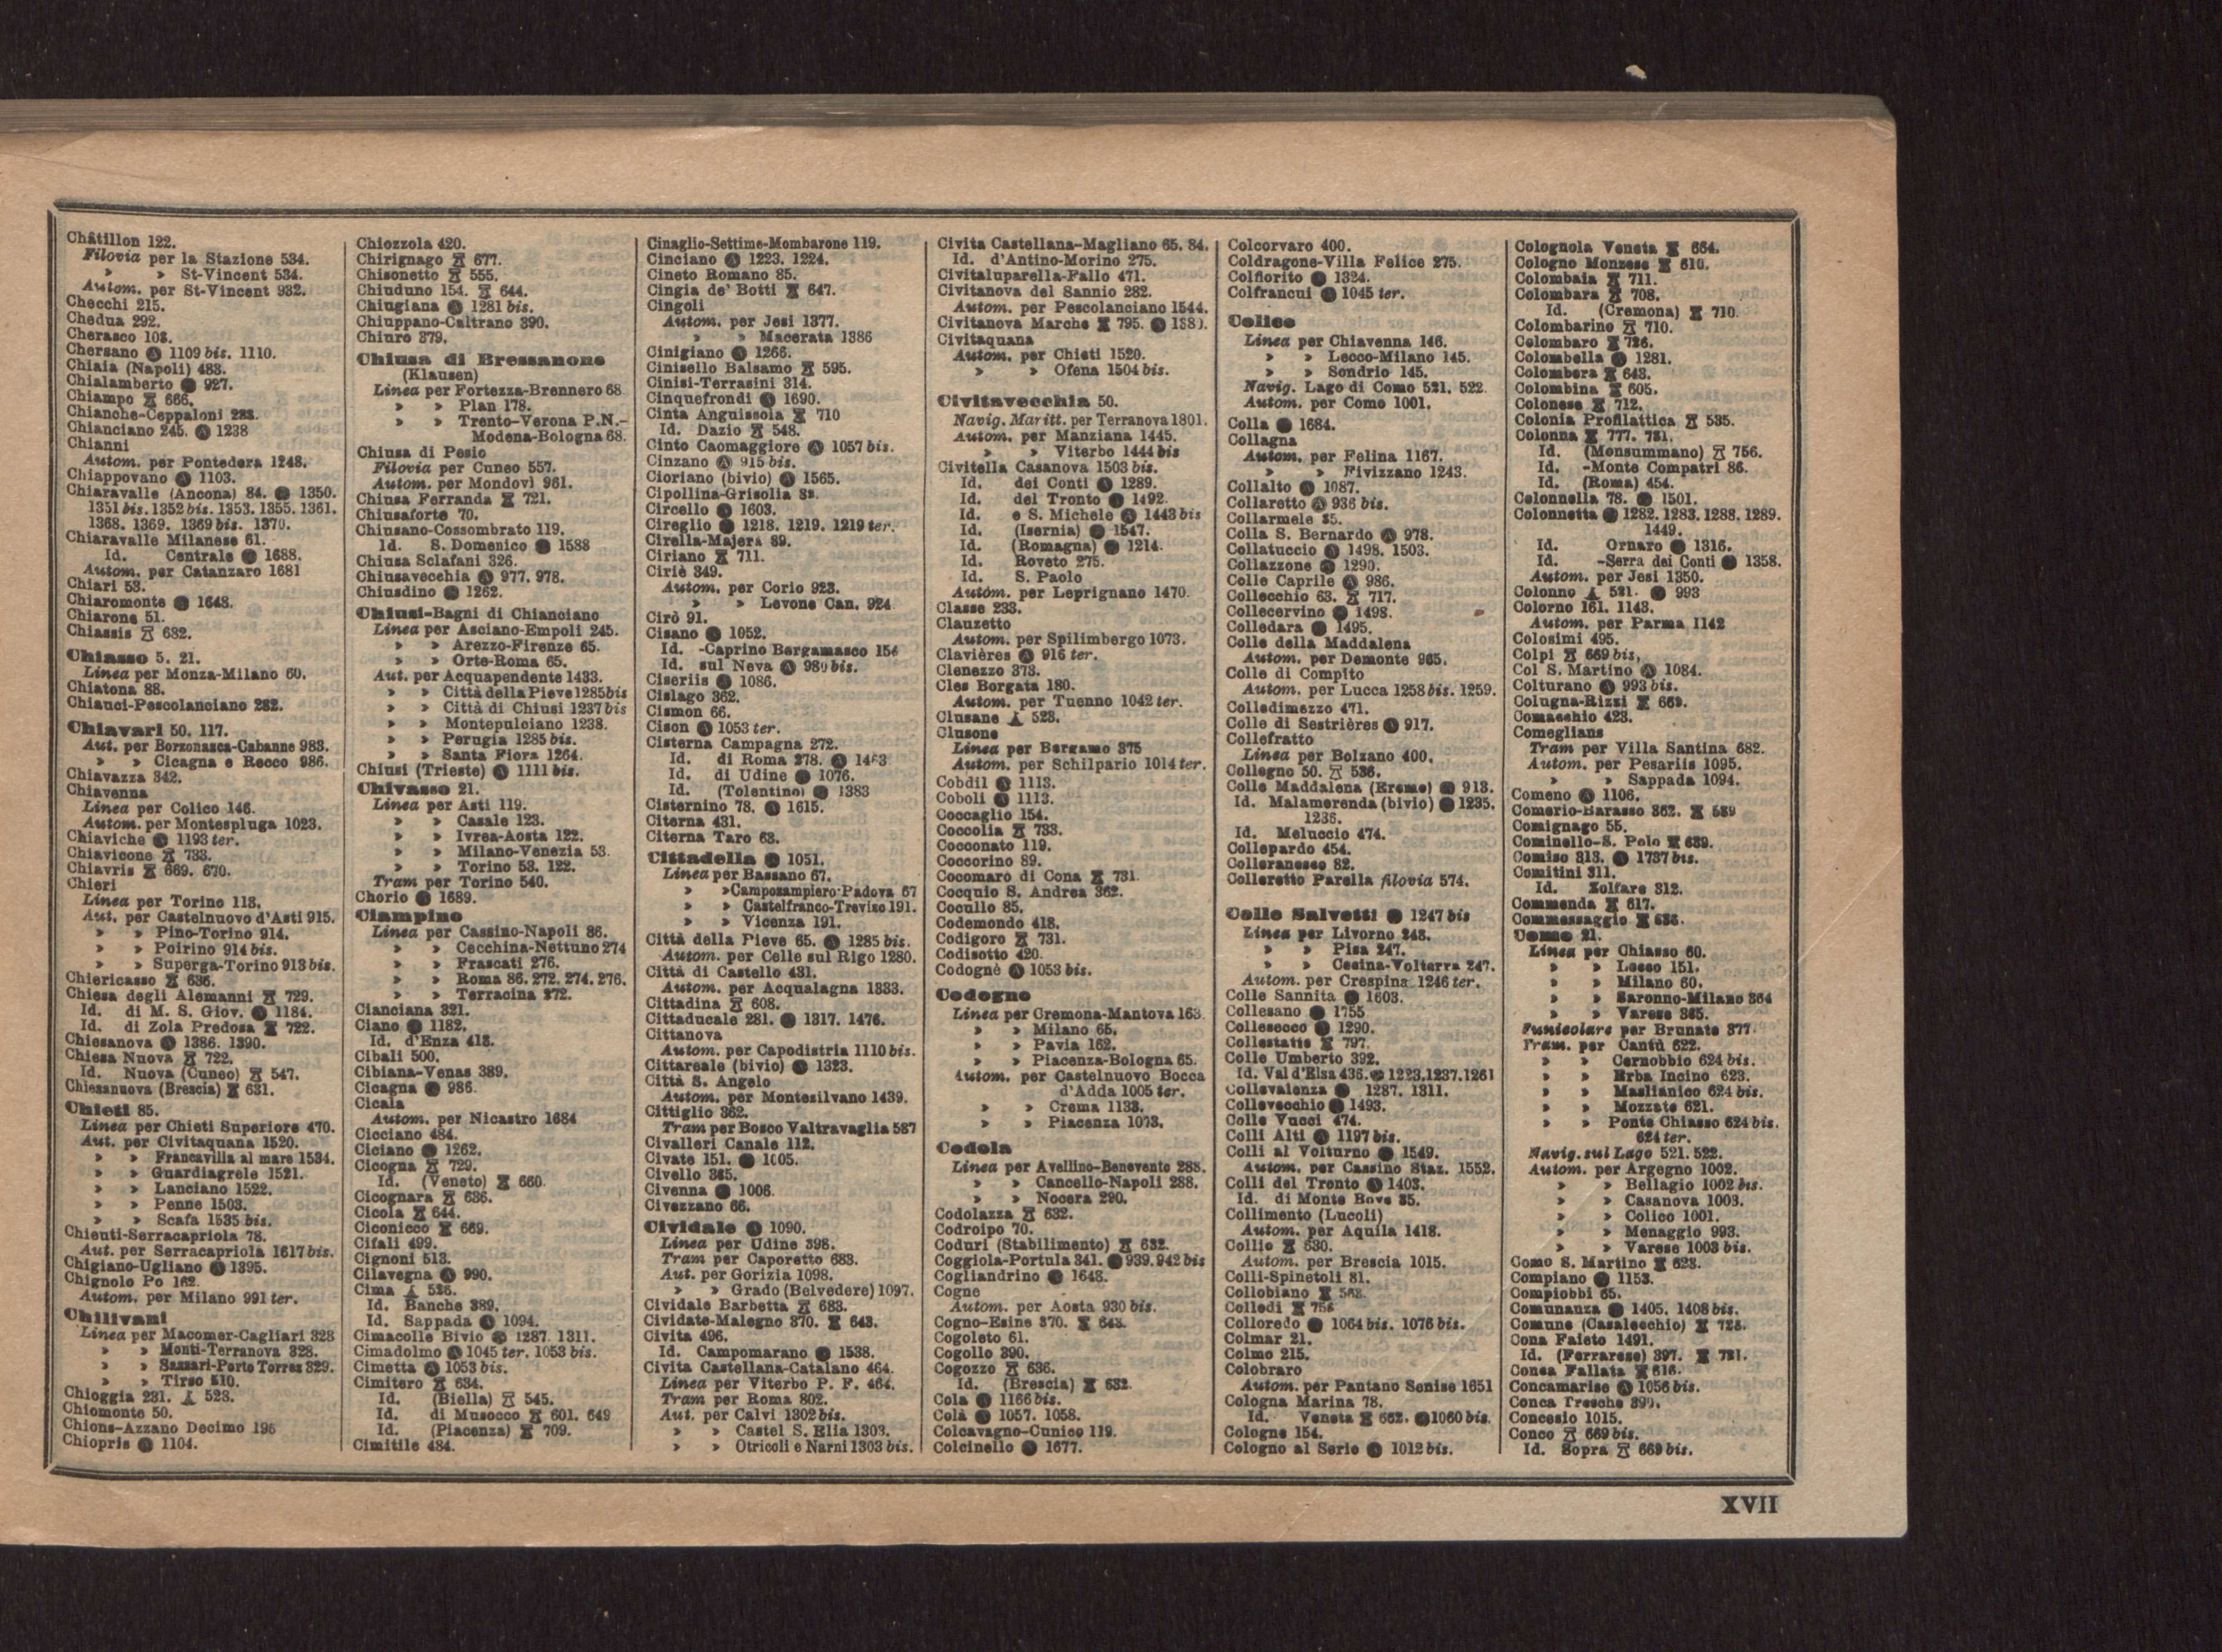 Châtillon 122.
Filovia per la Stazione 534.
» » St-Vincent 534.
Autom. per St-Vincent 932.
Checchi 215.
Chedua 292.
Cherasco 108.
Chersano Ⓐ 1109 bis. 1110.
Chiaia (Napoli) 483.
Chialamberto ● 927.
Chiampo 666.
Chianche-Ceppaloni 288.
Chianciano 245. Ⓐ 1238
Chianni
Autom. per Pontedera 1248.
Chiappovano Ⓐ 1103.
Chiaravalle (Ancona) 84. ● 1350.
1351 bis. 1352 bis. 1353. 1355. 1361.
1368. 1369. 1369 bis. 1370.
Chiaravalle Milanese 61.
Id. Centrale ● 1688.
Autom. per Catanzaro 1681
Chiari 53.
Chiaromonte ● 1648.
Chiarone 51.
Chiassis 682.
Chiasso 5. 21.
Linea per Monza-Milano 60.
Chiatona 88.
Chiauci-Pescolanciano 282.
Chiavari 50. 117.
Aut. per Borzonasca-Cabanne 983.
» » Cicagna e Recco 986.
Chiavazza 342.
Chiavenna
Linea per Colico 146.
Autom. per Montespluga 1023.
Chiaviche ● 1193 ter.
Chiavicone 733.
Chiavris 669. 670.
Chieri
Linea per Torino 113.
Aut. per Castelnuovo d'Asti 915.
» » Pino-Torino 914.
» » Poirino 914 bis.
» » Superga-Torino 913 bis.
Chiericasso 636.
Chiesa degli Alemanni 729.
Id. di M. S. Giov. ● 1184.
Id. di Zola Predosa 722.
Chiesanova Ⓐ 1386. 1390.
Chiesa Nuova 722.
Id. Nuova (Cuneo) 547.
Chiesanuova (Brescia) 631.
Chieti 85.
Linea per Chieti Superiore 470.
Aut. per Civitaquana 1520.
» » Francavilla al mare 1534.
» » Guardiagrele 1521.
» » Lanciano 1522.
» » Penne 1503.
» » Scafa 1535 bis.
Chieuti-Serracapriola 78.
Aut. per Serracapriola 1617 bis.
Chigiano-Ugliano Ⓐ 1395.
Chignolo Po 162.
Autom. per Milano 991 ter.
Chilivani
Linea per Macomer-Cagliari 328
» » Monti-Terranova 328.
» » Sassari-Porto Torres 329.
» » Tirso 510.
Chioggia 231. 523.
Chiomonte 50.
Chions-Azzano Decimo 196
Chiopris ● 1104.
Chiozzola 420.
Chirignago 677.
Chisonetto 555.
Chiuduno 154. 644.
Chiugiana Ⓐ 1281 bis.
Chiuppano-Caltrano 390.
Chiuro 379.
Chiusa di Bressanone
(Klausen)
Linea per Fortezza-Brennero 68
» » Plan 178.
» » Trento-Verona P.N.-
Modena-Bologna 68.
Chiusa di Pesio
Filovia per Cuneo 557.
Autom. per Mondovì 961.
Chiusa Ferranda 721.
Chiusaforte 70.
Chiusano-Cossombrato 119.
Id. S. Domenico ● 1588
Chiusa Sclafani 326.
Chiusavecchia Ⓐ 977. 978.
Chiusdino ● 1262.
Chiusi-Bagni di Chianciano
Linea per Asciano-Empoli 245.
» » Arezzo-Firenze 65.
» » Orte-Roma 65.
Aut. per Acquapendente 1433.
» » Città della Pieve 1285 bis
» » Città di Chiusi 1237 bis
» » Montepulciano 1238.
» » Perugia 1285 bis.
» » Santa Fiora 1264.
Chiusi (Trieste) Ⓐ 1111 bis.
Chivasso 21.
Linea per Asti 119.
» » Casale 123.
» » Ivrea-Aosta 122.
» » Milano-Venezia 53.
» » Torino 53. 122.
Tram per Torino 540.
Chorio ● 1689.
Ciampino
Linea per Cassino-Napoli 86.
» » Cecchina-Nettuno 274
» » Frascati 276.
» » Roma 86. 272. 274. 276.
» » Terracina 272.
Cianciana 321.
Ciano ● 1182.
Id. d'Enza 418.
Cibali 500.
Cibiana-Venas 389.
Cicagna ● 986.
Cicala
Autom. per Nicastro 1684
Cicciano 484.
Ciciano ● 1262.
Cicogna 729.
Id. (Veneto) 660.
Cicognara 636.
Cicola 644.
Ciconicco 669.
Cifali 499.
Cignoni 513.
Cilavegna Ⓐ 990.
Cima 526.
Id. Banche 389.
Id. Sappada Ⓐ 1094.
Cimacolle Bivio 1287. 1311.
Cimadolmo Ⓐ 1045 ter. 1053 bis.
Cimetta Ⓐ 1053 bis.
Cimitero 634.
Id. (Biella) 545.
Id. di Musocco 601. 649
Id. (Piacenza) 709.
Cimitile 484.
Cinaglio-Settime-Mombarone 119.
Cinciano Ⓐ 1223. 1224.
Cineto Romano 85.
Cingia de' Botti 647.
Cingoli
Autom. per Jesi 1377.
» » Macerata 1386
Cinigiano ● 1266.
Cinisello Balsamo 595.
Cinisi-Terrasini 314.
Cinquefrondi ● 1690.
Cinta Anguissola 710
Id. Dazio 548.
Cinto Caomaggiore Ⓐ 1057 bis.
Cinzano Ⓐ 915 bis.
Cioriano (bivio) Ⓐ 1565.
Cipollina-Grisolia 89.
Circello ● 1603.
Cireglio ● 1218. 1219. 1219 ter.
Cirella-Majerà 89.
Ciriano 711.
Ciriè 349.
Autom. per Corio 923.
» » Levone Can. 924
Cirò 91.
Cisano ● 1052.
Id. -Caprino Bergamasco 154
Id. sul Neva Ⓐ 980 bis.
Ciseriis ● 1086.
Cislago 362.
Cismon 66.
Cison Ⓐ 1053 ter.
Cisterna Campagna 272.
Id. di Roma 278. Ⓐ 1463
Id. di Udine ● 1076.
Id. (Tolentino) ● 1383
Cisternino 78. Ⓐ 1615.
Citerna 431.
Citerna Taro 63.
Cittadella ● 1051.
Linea per Bassano 67.
» » Camposampiero-Padova 67
» » Castelfranco-Treviso 191.
» » Vicenza 191.
Città della Pieve 65. Ⓐ 1285 bis.
Autom. per Celle sul Rigo 1280.
Città di Castello 431.
Autom. per Acqualagna 1333.
Cittadina 608.
Cittaducale 281. ● 1317. 1476.
Cittanova
Autom. per Capodistria 1110 bis.
Cittareale (bivio) ● 1323.
Città S. Angelo
Autom. per Montesilvano 1439.
Cittiglio 362.
Tram per Bosco Valtravaglia 587
Civalleri Canale 112.
Civate 151. ● 1005.
Civello 365.
Civenna ● 1006.
Civezzano 66.
Cividale Ⓐ 1090.
Linea per Udine 398.
Tram per Caporetto 683.
Aut. per Gorizia 1098.
» » Grado (Belvedere) 1097.
Cividale Barbetta 683.
Cividate-Malegno 370. 643.
Civita 496.
Id. Campomarano ● 1538.
Civita Castellana-Catalano 464.
Linea per Viterbo P. F. 464.
Tram per Roma 802.
Aut. per Calvi 1302 bis.
» » Castel S. Elia 1303.
» » Otricoli e Narni 1303 bis.
Civita Castellana-Magliano 65. 84.
Id. d'Antino-Morino 275.
Civitaluparella-Fallo 471.
Civitanova del Sannio 282.
Autom. per Pescolanciano 1544.
Civitanova Marche 795. ●
Civitaquana
Autom. per Chieti 1520.
» » Ofena 1504 bis.
Civitavecchia 50.
Navig. Maritt. per Terranova 1801.
Autom. per Manziana 1445.
» » Viterbo 1444 bis
Civitella Casanova 1503 bis.
Id. dei Conti Ⓐ 1289.
Id. del Tronto ● 1492.
Id. e S. Michele Ⓐ 1443 bis
Id. (Isernia) ● 1547.
Id. (Romagna) ● 1214.
Id. Roveto 275.
Id. S. Paolo
Autom. per Leprignano 1470.
Classe 233.
Clauzetto
Autom. per Spilimbergo 1073.
Clavières Ⓐ 916 ter.
Clenezzo 373.
Cles Borgata 180.
Autom. per Tuenno 1042 ter.
Clusane 523.
Clusone
Linea per Bergamo 375
Autom. per Schilpario 1014 ter.
Cobdil Ⓐ 1113.
Coboli Ⓐ 1113.
Coccaglio 154.
Coccolia 733.
Cocconato 119.
Coccorino 89.
Cocomaro di Cona 731.
Cocquio S. Andrea 362.
Cocullo 85.
Codemondo 418.
Codigoro 731.
Codisotto 420.
Codognè Ⓐ 1053 bis.
Codogno
Linea per Cremona-Mantova 163.
» » Milano 65.
» » Pavia 162.
» » Piacenza-Bologna 65.
Autom. per Castelnuovo Bocca
d'Adda 1005 ter.
» » Crema 1133.
» » Piacenza 1003.
Codola
Linea per Avellino-Benevento 288.
» » Cancello-Napoli 288.
» » Nocera 290.
Codolazza 632.
Codroipo 70.
Coduri (Stabilimento) 632.
Coggiola-Portula 341. ● 939. 942 bis
Cogliandrino ● 1648.
Cogne
Autom. per Aosta 930 bis.
Cogno-Esine 370. 643.
Cogoleto 61.
Cogollo 390.
Cogozzo 636.
Id. (Brescia) 632.
Cola ● 1166 bis.
Colà ● 1057. 1058.
Colcavagno-Cunico 119.
Colcinello ● 1677.
Colcorvaro 400.
Coldragone-Villa Felice 275.
Colfiorito ● 1324.
Colfrancui ● 1045 ter.
Colico
Linea per Chiavenna 146.
» » Lecco-Milano 145.
» » Sondrio 145.
Navig. Lago di Como 521. 522.
Autom. per Como 1001.
Colla ● 1684.
Collagna
Autom. per Felina 1167.
» » Fivizzano 1243.
Collalto Ⓐ 1087.
Collaretto Ⓐ 936 bis.
Collarmele 85.
Colla S. Bernardo Ⓐ 978.
Collatuccio Ⓐ 1498. 1503.
Collazzone Ⓐ 1290.
Colle Caprile Ⓐ 986.
Collecchio 63. 717.
Collecervino ● 1498.
Colledara ● 1495.
Colle della Maddalena
Autom. per Demonte 965.
Colle di Compito
Autom. per Lucca 1258 bis. 1259.
Colledimezzo 471.
Colle di Sestrières Ⓐ 917.
Collefratto
Linea per Bolzano 400.
Collegno 50. 536.
Colle Maddalena (Eremo) ● 913.
Id. Malamerenda (bivio) ● 1235.
1236.
Id. Meluccio 474.
Collepardo 454.
Colleranesco 82.
Colleretto Parella filovia 574.
Colle Salvetti ● 1247 bis
Linea per Livorno 248.
» » Pisa 247.
» » Cecina-Volterra 247.
Autom. per Crespina 1246 ter.
Colle Sannita ● 1603.
Collesano ● 1755
Collesecco ● 1290.
Collestatte 797.
Colle Umberto 392.
Id. Val d'Elsa 436. ● 1223.1237.1261
Collevalenza ● 1287. 1311.
Collevecchio ● 1493.
Colle Vucci 474.
Colli Alti Ⓐ 1197 bis.
Colli al Volturno ● 1549.
Autom. per Cassino Staz. 1552.
Colli del Tronto Ⓐ 1403.
Id. di Monte Bove 85.
Collimento (Lucoli)
Autom. per Aquila 1418.
Collio 630.
Autom. per Brescia 1015.
Colli-Spinetoli 81.
Collobiano 568.
Collodi 756
Colloredo ● 1064 bis. 1076 bis.
Colmar 21.
Colmo 215.
Colobraro
Autom. per Pantano Senise 1651
Cologna Marina 78.
Id. Veneta 662. ● 1060 bis.
Cologne 154.
Cologno al Serio ● 1012 bis.
Colognola Veneta 664.
Cologno Monzese 610.
Colombaia 711.
Colombara 708.
Id. (Cremona) 710.
Colombarino 710.
Colombaro 726.
Colombella ● 1281.
Colombera 643.
Colombina 605.
Colonese 712.
Colonia Profilattica 535.
Colonna 777. 781.
Id. (Monsummano) 756.
Id. -Monte Compatri 86.
Id. (Roma) 454.
Colonnella 78. ● 1501.
Colonnetta ● 1282. 1283. 1288. 1289.
1449.
Id. Ornaro ● 1316.
Id. -Serra dei Conti ● 1358.
Autom. per Jesi 1350.
Colonno 521. ● 993
Colorno 161. 1143.
Autom. per Parma 1142
Colosimi 495.
Colpi 669 bis,
Col S. Martino Ⓐ 1084.
Colturano Ⓐ 993 bis.
Colugna-Rizzi 669.
Comacchio 423.
Comeglians
Tram per Villa Santina 682.
Autom. per Pesariis 1095.
» » Sappada 1094.
Comeno Ⓐ 1106.
Comerio-Barasso 362. 589
Comignago 55.
Cominello-S. Polo 639.
Comiso 313. ● 1737 bis.
Comitini 311.
Id. Zolfare 312.
Commenda 617.
Commessaggio 636.
Como 21.
Linea per Chiasso 60.
» » Lecco 151.
» » Milano 60.
» » Saronno-Milano 364
» » Varese 365.
Funicolare per Brunate 377.
Tram. per Cantù 622.
» » Cernobbio 624 bis.
» » Erba Incino 623.
» » Maslianico 624 bis.
» » Mozzate 621.
» » Ponte Chiasso 624 bis.
624 ter.
Navig. sul Lago 521. 522.
Autom. per Argegno 1002.
» » Bellagio 1002 bis.
» » Casanova 1003.
» » Colico 1001.
» » Menaggio 993.
» » Varese 1003 bis.
Como S. Martino 623.
Compiano ● 1153.
Compiobbi 65.
Comunanza ● 1405. 1408 bis.
Comune (Casalecchio) 728.
Cona Faieto 1491.
Id. (Ferrarese) 397. 731.
Conca Fallata 616.
Concamarise Ⓐ 1056 bis.
Conca Tresche 390.
Concesio 1015.
Conco 669 bis.
Id. Sopra 669 bis.
XVII